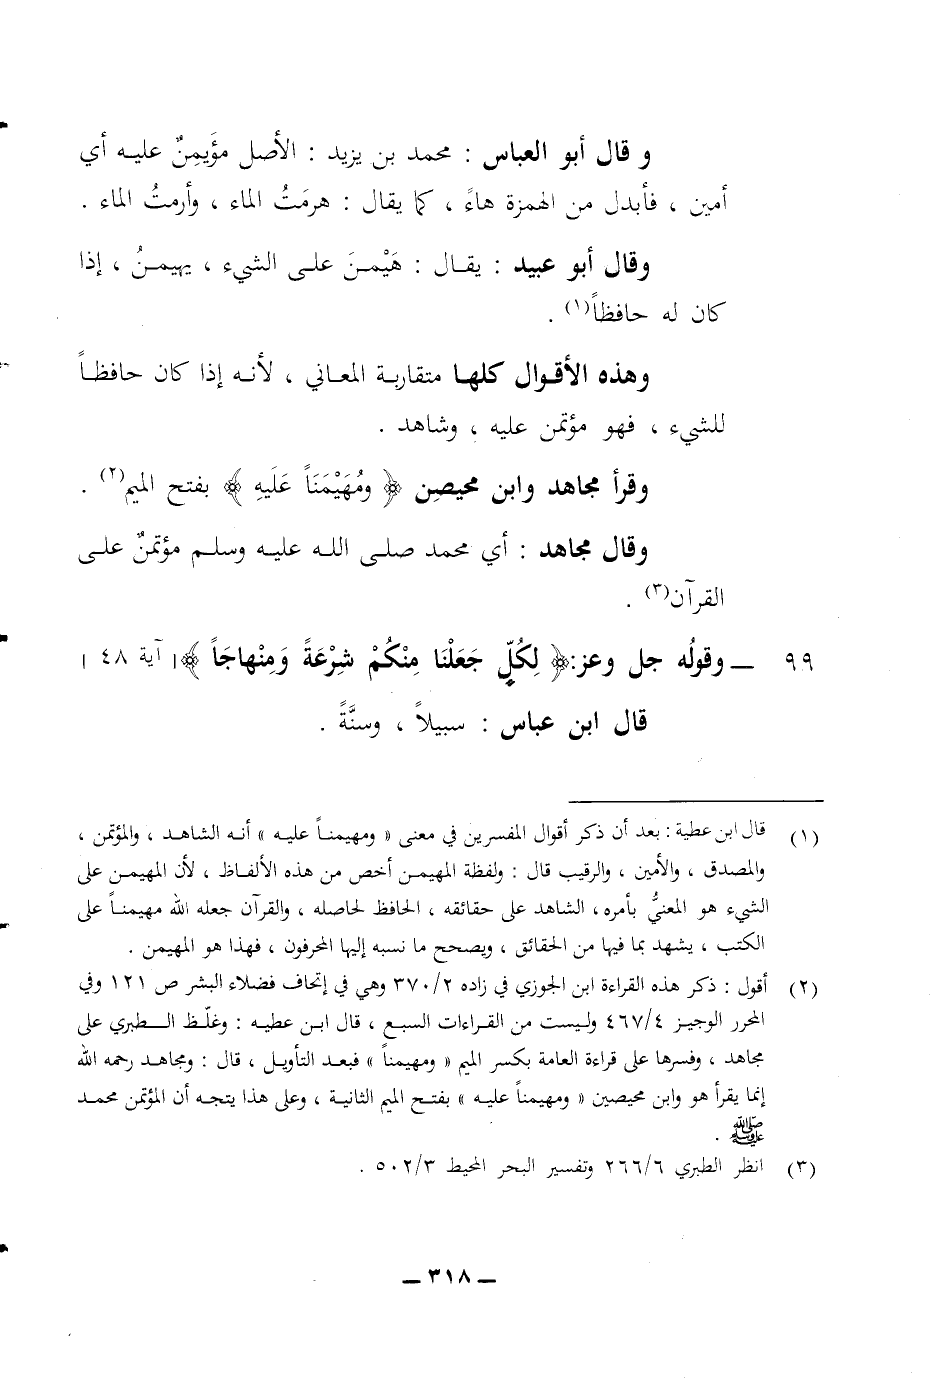 و قال أبو العباس : محمد بن يزيد : الأصل مؤَيمِنٌ عليه أي
أمين ، فأبدل من الهمزة هاءً ، كما يقال : هرمَتُ الماء ، وأرمتُ الماء .
وقال أبو عبيد : يقال : هَيْمنَ على الشيء ، يهيمنُ ، إذا
كان له حافظاً(١) .
وهذه الأقوال كلها متقاربة المعاني ، لأنه إذا كان حافظاً
للشيء ، فهو مؤتمن عليه ، وشاهد .
وقرأ مجاهد وابن محيصِن ﴿ ومُهَيْمَنَاً عَلَيهِ ﴾ بفتح الميم(٢) .
وقال مجاهد : أي محمد صلى الله عليه وسلم مؤتمنٌ على
القرآن(٣) .
٩٩ ــ وقولُه جل وعز:﴿ لِكُلٍّ جَعَلْنَا مِنْكُمْ شِرْعَةً وَمِنْهاجَاً ﴾[ آية ٤٨ ]
قال ابن عباس : سبيلاً ، وسنَّةً .
(١) قال ابن عطية : بعد أن ذكر أقوال المفسرين في معنى « ومهيمناً عليه » أنه الشاهد ، والمؤتمن ،
والمصدق ، والأمين ، والرقيب قال : ولفظة المهيمن أخص من هذه الألفاظ ، لأن المهيمن على
الشيء هو المعنيُّ بأمره ، الشاهد على حقائقه ، الحافظ لحاصله ، والقرآن جعله الله مهيمناً على
الكتب ، يشهد بما فيها من الحقائق ، ويصحح ما نسبه إليها المحرفون ، فهذا هو المهيمن .
(٢) أقول : ذكر هذه القراءة ابن الجوزي في زاده ٣٧٠/٢ وهي في إتحاف فضلاء البشر ص ١٢١ وفي
المحرر الوجيز ٤٦٧/٤ وليست من القراءات السبع ، قال ابن عطيه : وغلَّظ الطبري على
مجاهد ، وفسرها على قراءة العامة بكسر الميم « ومهيمناً » فبعد التأويل ، قال : ومجاهد رحمه الله
إنما يقرأ هو وابن محيصين « ومهيمناً عليه » بفتح الميم الثانية ، وعلى هذا يتجه أن المؤتمن محمد
ﷺ .
(٣) انظر الطبري ٢٦٦/٦ وتفسير البحر المحيط ٥٠٢/٣ .
ــ ٣١٨ ــ